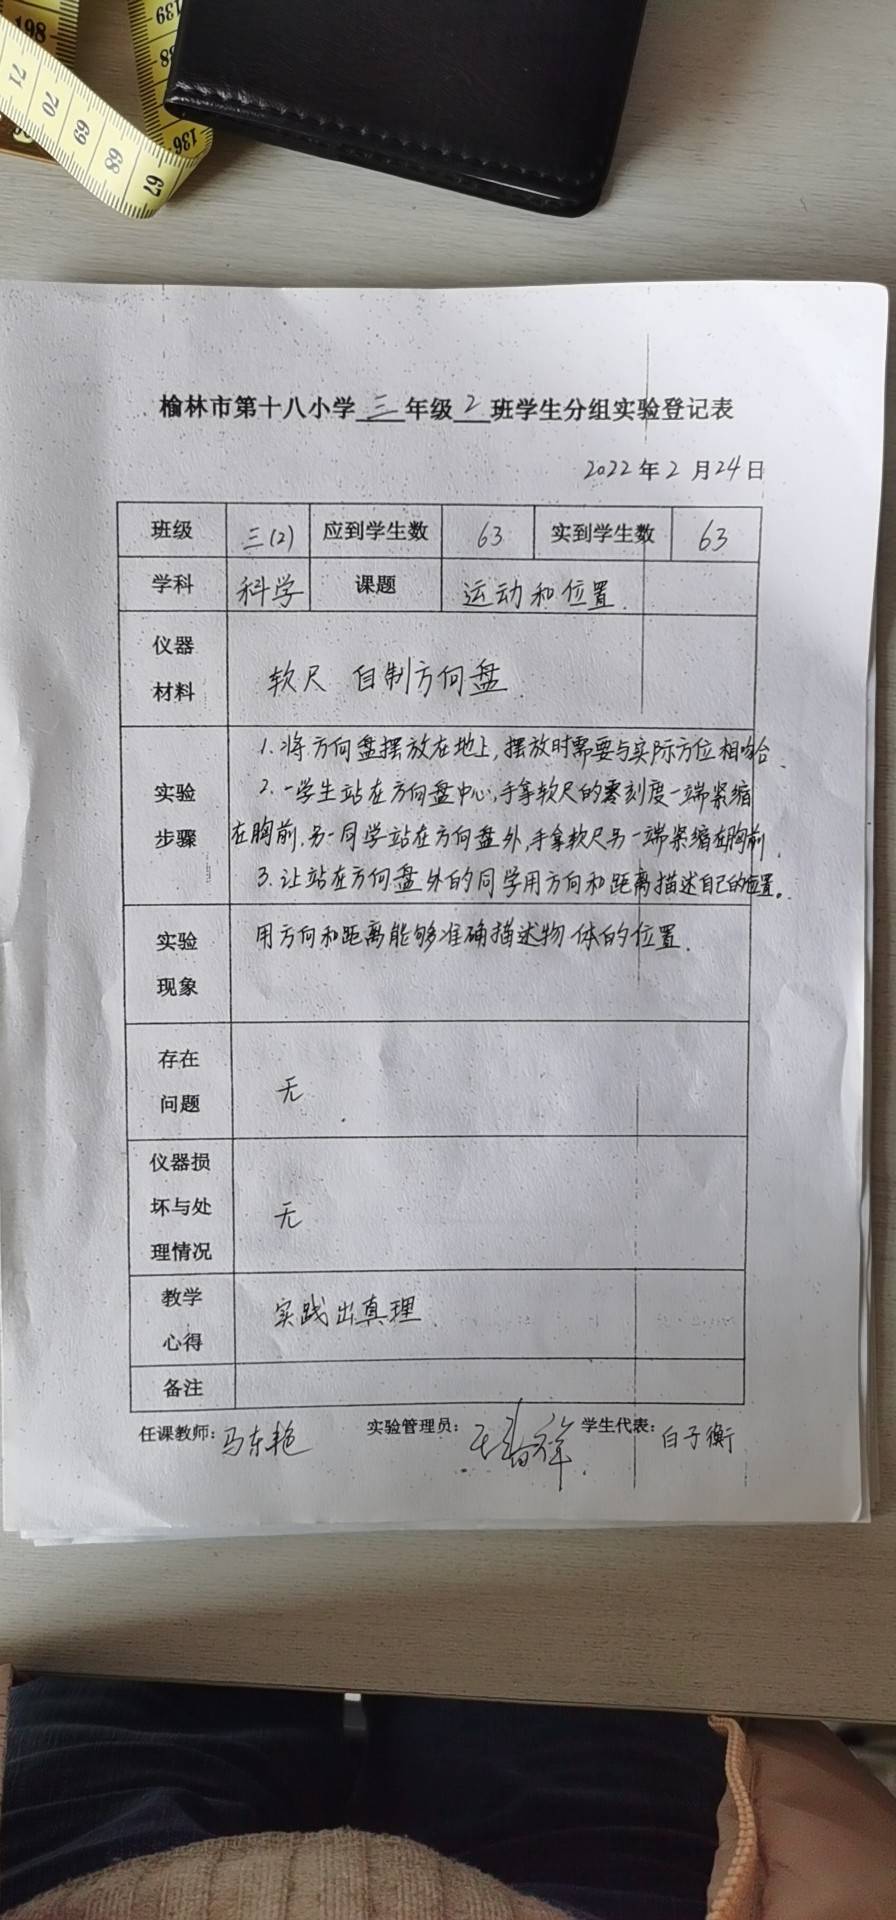 198
139
38
136
71
70
69
68
67
榆林市第十八小学三年级2班学生分组实验登记表
2022年2月24日
班级 三(2) 应到学生数 63 实到学生数 63
学科 科学 课题 运动和位置.
仪器
材料
软尺 自制方向盘
实验
步骤
1.将方向盘摆放在地上,摆放时需要与实际方位相吻合.
2.一学生站在方向盘中心,手拿软尺的零刻度一端紧缩
在胸前,另一同学站在方向盘外,手拿软尺另一端紧缩在胸前.
3.让站在方向盘外的同学用方向和距离描述自己的位置。
实验
现象
用方向和距离能够准确描述物体的位置.
存在
问题
无
仪器损
坏与处
理情况
无
教学
心得
实践出真理
备注
任课教师:马东艳 实验管理员: 学生代表:白子衡